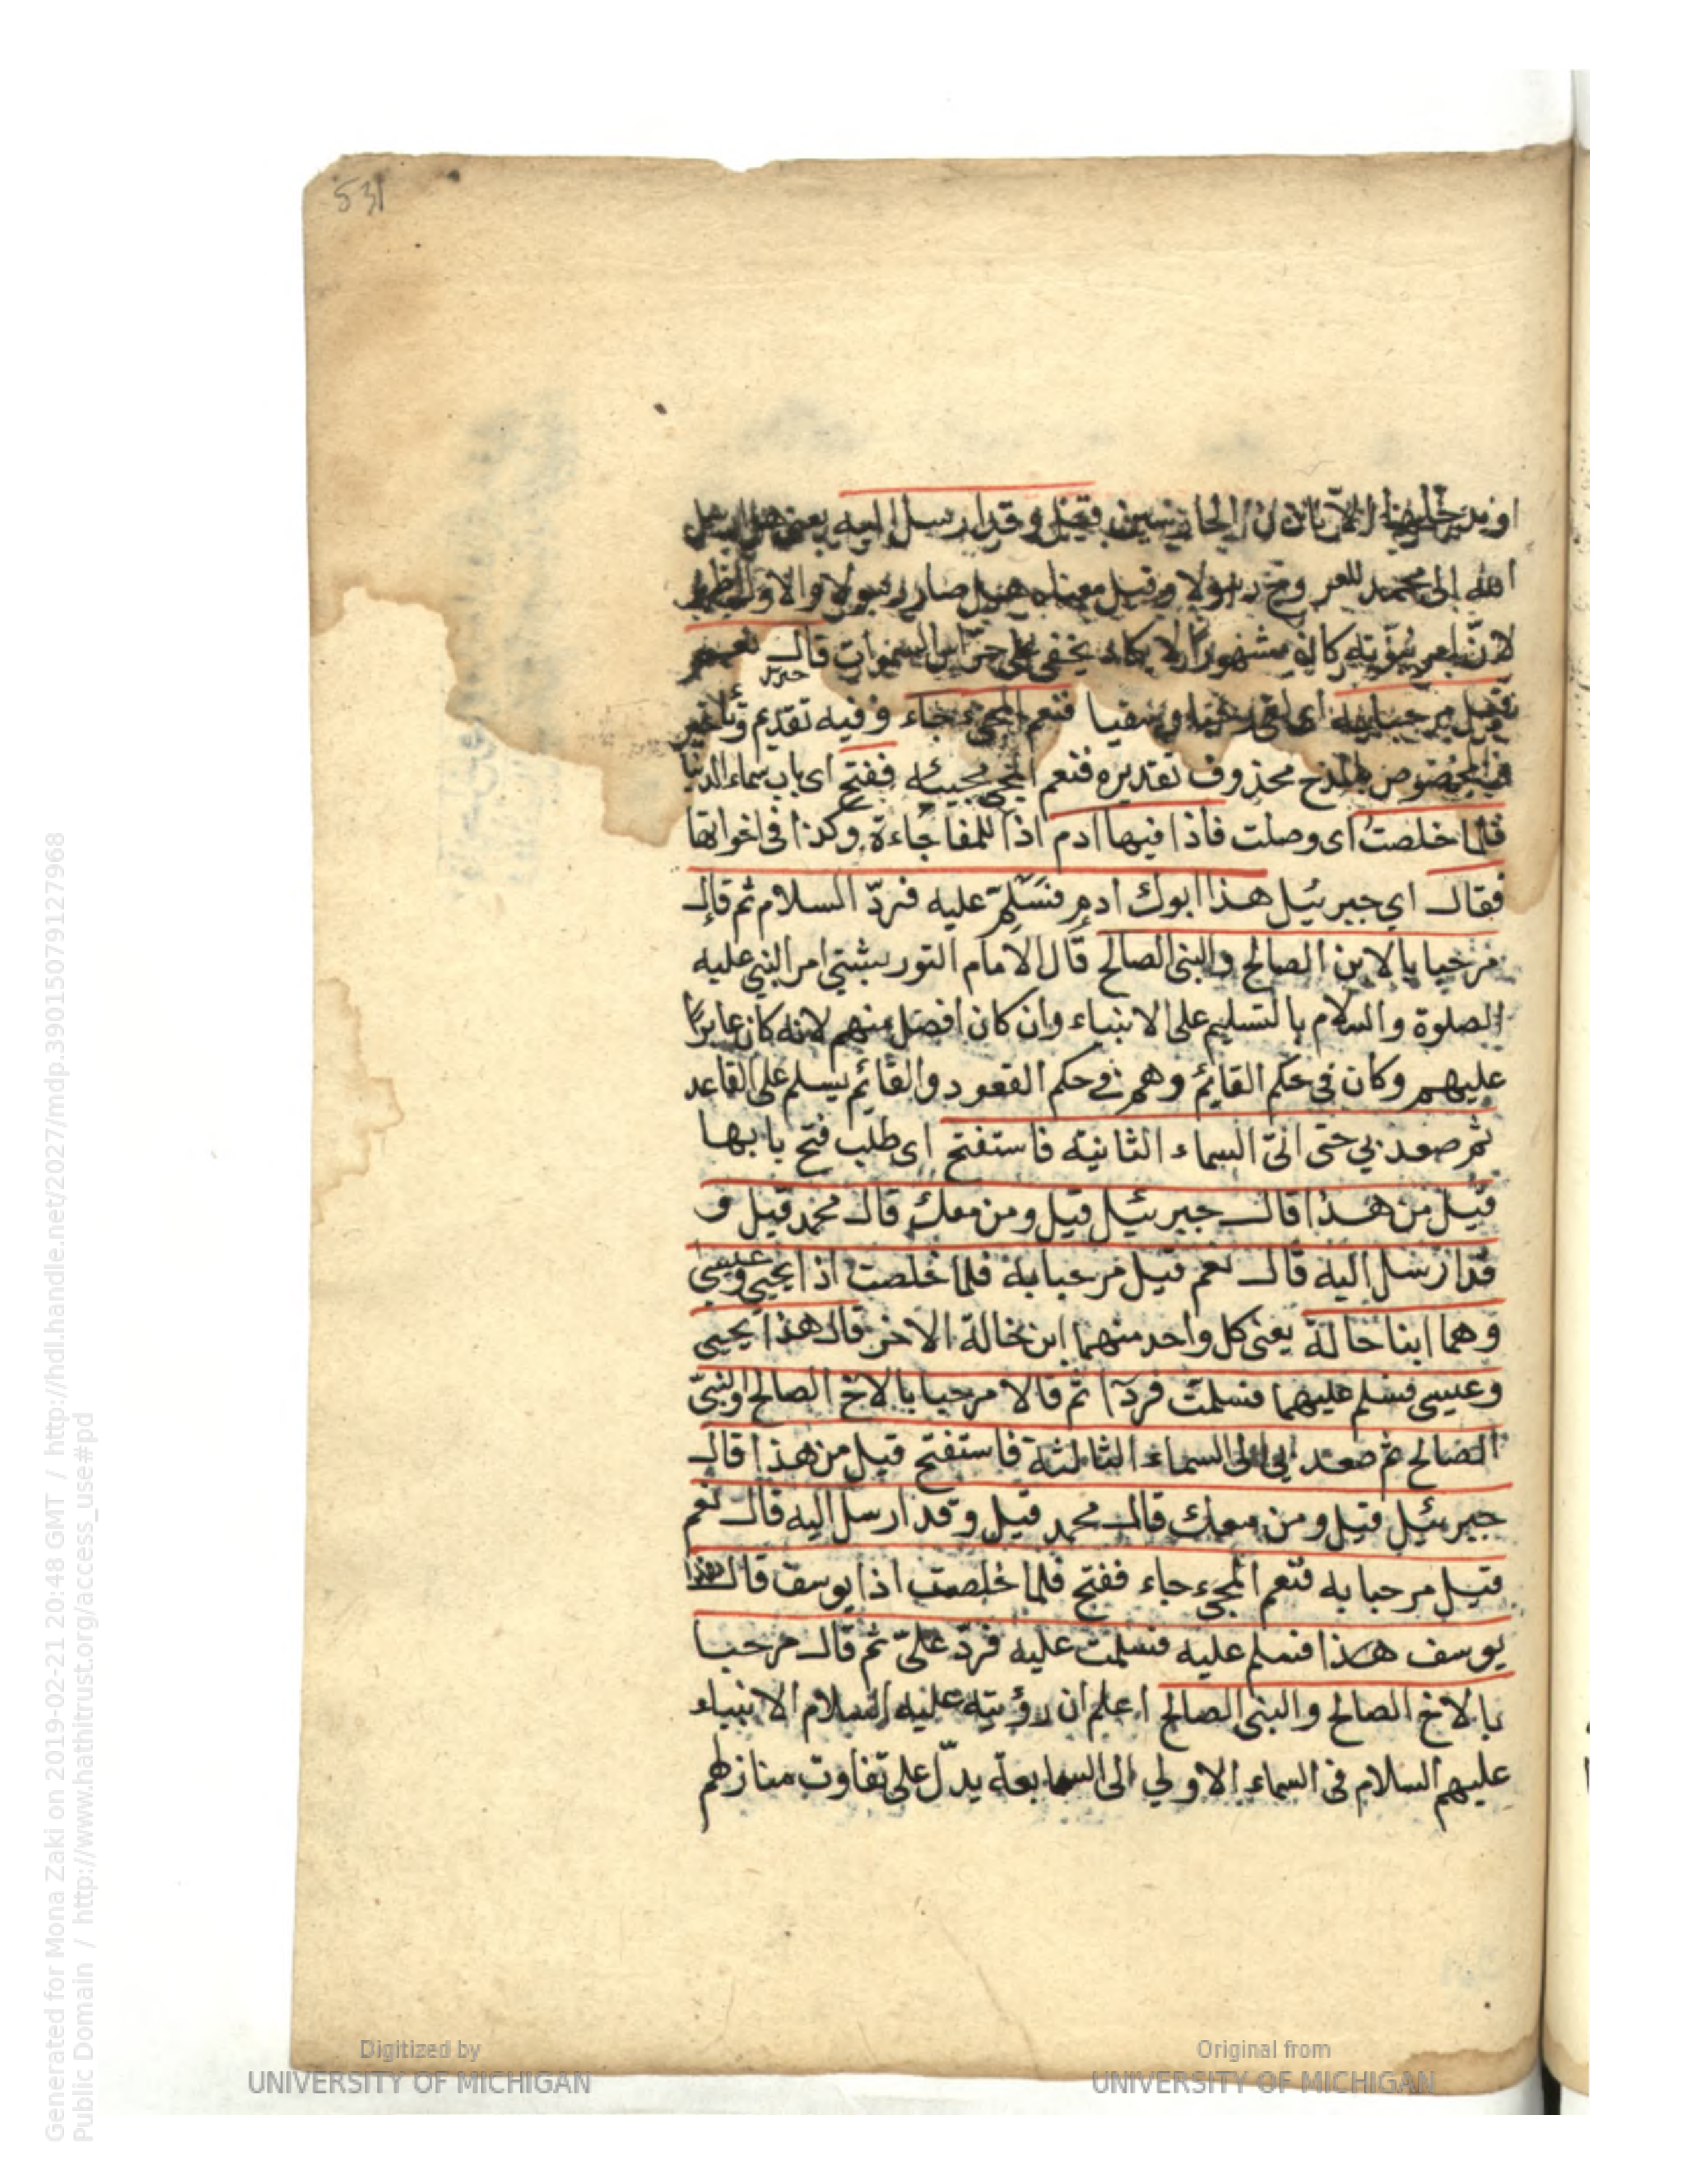 531
او يدخلها الا باذن الحارسين فقيل وقد ارسل اليه يعنى هل ارسل
الله الى محمد للعروج رسولا وقيل معناه هل صار رسولا والاول اظهر
لان امر نبوته كان مشهورا لا يكاد يخفى على حراس السموات قال نعم
جبريل
قيل مرحبا به اى لقى رحبا وسقيا فنعم المجيء جاء وفيه تقديم وتأخير
فالمخصوص بالمدح محذوف تقديره فنعم المجئ مجيئه ففتح اى باب سماء الدنيا
فلما خلصت اى وصلت فاذا فيها ادم اذا للمفاجاءة وكذا فى اخواتها
فقال اي جبرئيل هذا ابوك ادم فسلم عليه فردّ السلام ثم قال
مرحبا بالابن الصالح والنبى الصالح قال الامام التوربشتي امر النبي عليه
الصلوة والسلام بالتسليم على الانبياء وان كان افضل منهم لانه كان عابرا
عليهم وكان فى حكم القايم وهم فے حكم القعود والقائم يسلم على القاعد
ثم صعد بي حتى اتى السماء الثانية فاستفتح اى طلب فتح بابها
قيل من هذا قال جبرئيل قيل ومن معك قال محمد قيل و
قد ارسل اليه قال نعم قيل مرحبا به فلما خلصت اذا يحيى وعيسى
وهما ابنا خالة يعنى كل واحد منهما ابن خالة الاخر قال هذا يحيى
وعيسى فسلم عليهما فسلمت فردّا ثم قالا مرحبا بالاخ الصالح والنبى
الصالح ثم صعد بي الى السماء الثالثة فاستفتح قيل من هذا قال
جبرئيل قيل ومن معك قال محمد قيل وقد ارسل اليه قال نعم
قيل مرحبا به فنعم المجيء جاء ففتح فلما خلصت اذا يوسف قال هذا
يوسف هذا فسلم عليه فسلمت عليه فردّ علىّ ثم قال مرحبا
بالاخ الصالح والنبى الصالح اعلم ان رؤيته عليه السلام الانبياء
عليهم السلام فى السماء الاولي الى السابعة يدلّ على تفاوت منازلهم
Digitized by
UNIVERSITY OF MICHIGAN
Original from
UNIVERSITY OF MICHIGAN
Generated for Mona Zaki on 2019-02-21 20:48 GMT / http://hdl.handle.net/2027/mdp.39015079127968
Public Domain / http://www.hathitrust.org/access_use#pd